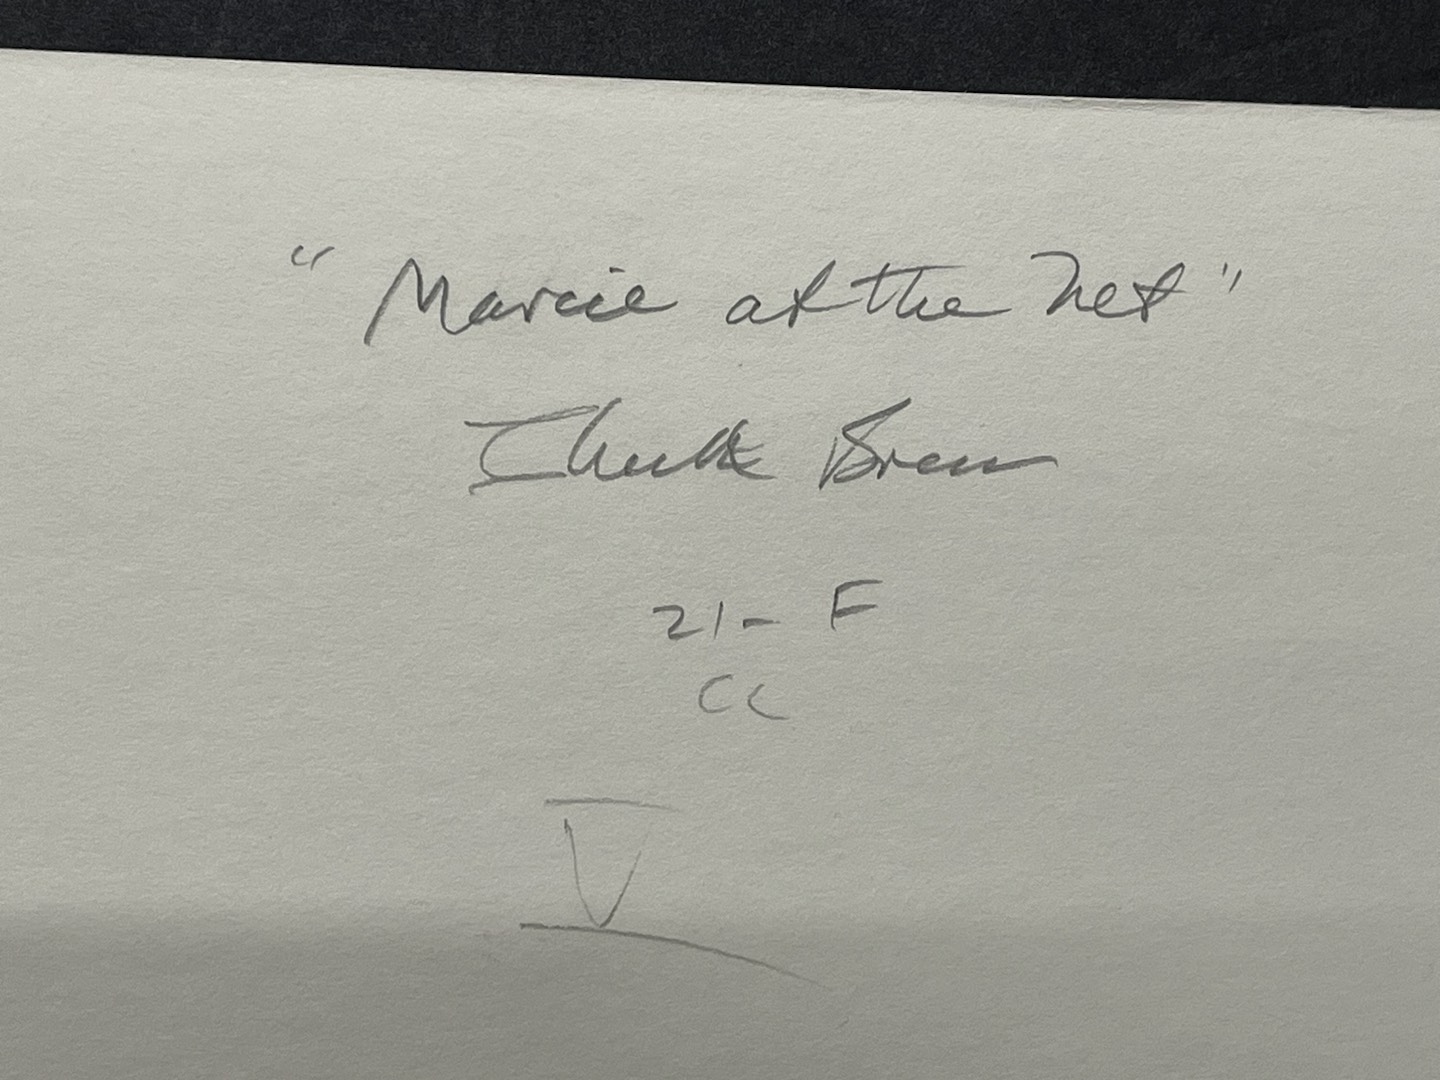 "Marcie at the Net"
Chuck
21- F
CC
V